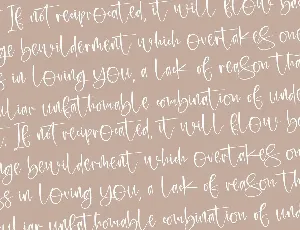 If not reciprocated, it will flow ba
ge bewilderment which overtakes one
s in loving you, a lack of reason tha
uliar unfathomable combination of unde
If not reciprocated, it will flow ba
ge bewilderment which overtakes on
s in loving you, a lack of reason tha
uliar unfathomable combination of und